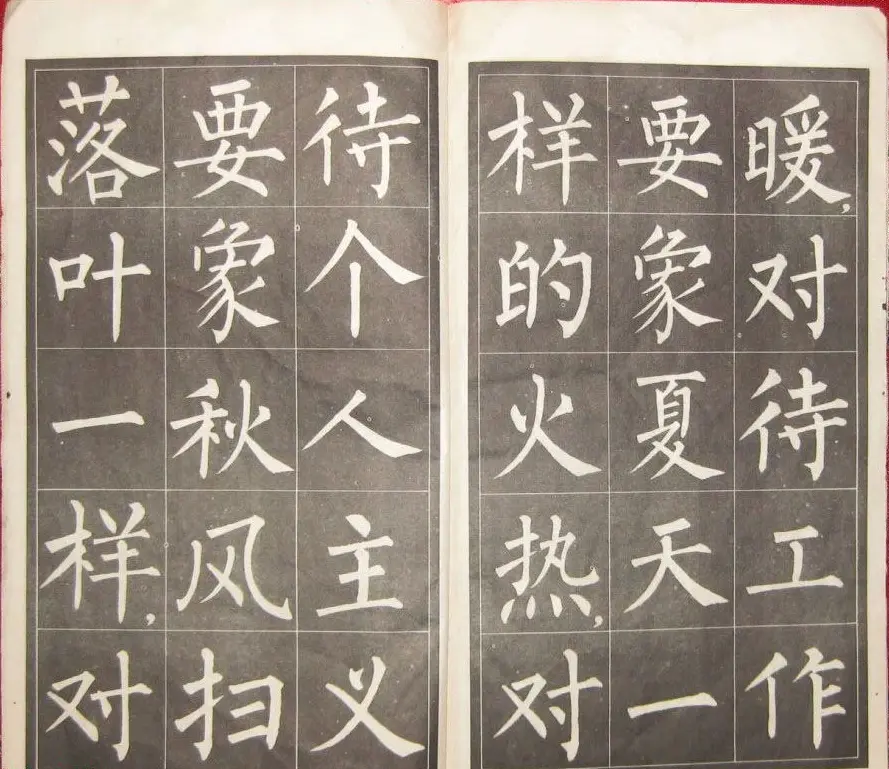 暖,对待工作
要象夏天一
样的火热,对
待个人主义
要象秋风扫
落叶一样,对